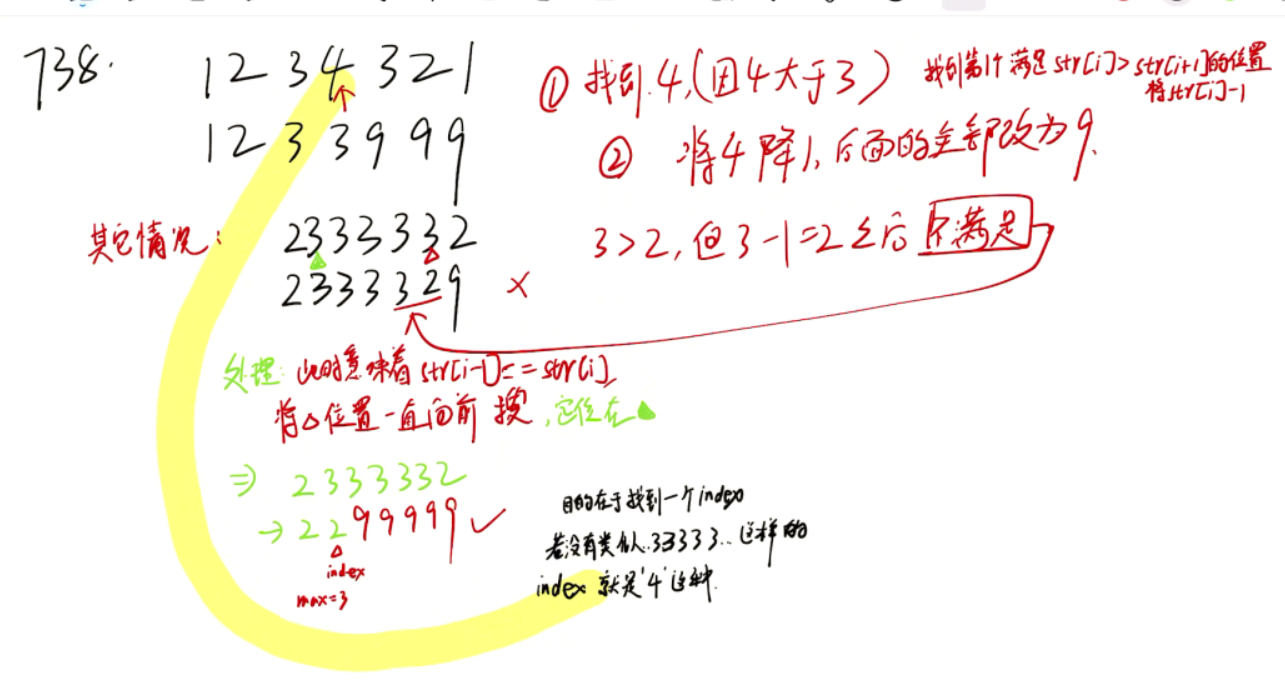 738.
1234321
1233999
① 找到.4,(因4大于3)
找到第1个满足 str[i]>str[i+1]的位置
将str[i]-1
② 将4降1,后面的全部改为9.
其它情况:
2333332
2333329 ×
3>2,但3-1=2之后不满足
处理:此时意味着 str[i-1]==str[i]
将△位置一直向前搜,定位在▲
⇒ 2333332
→ 2299999 ✓
△
index
max=3
目的在于找到一个index
若没有类似.33333..这样的
index 就是'4'这种.